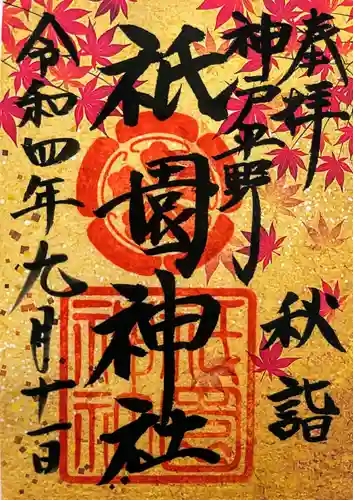 奉拝
神戸平野
秋詣
祇園神社
令和四年九月十一日
祇園神社